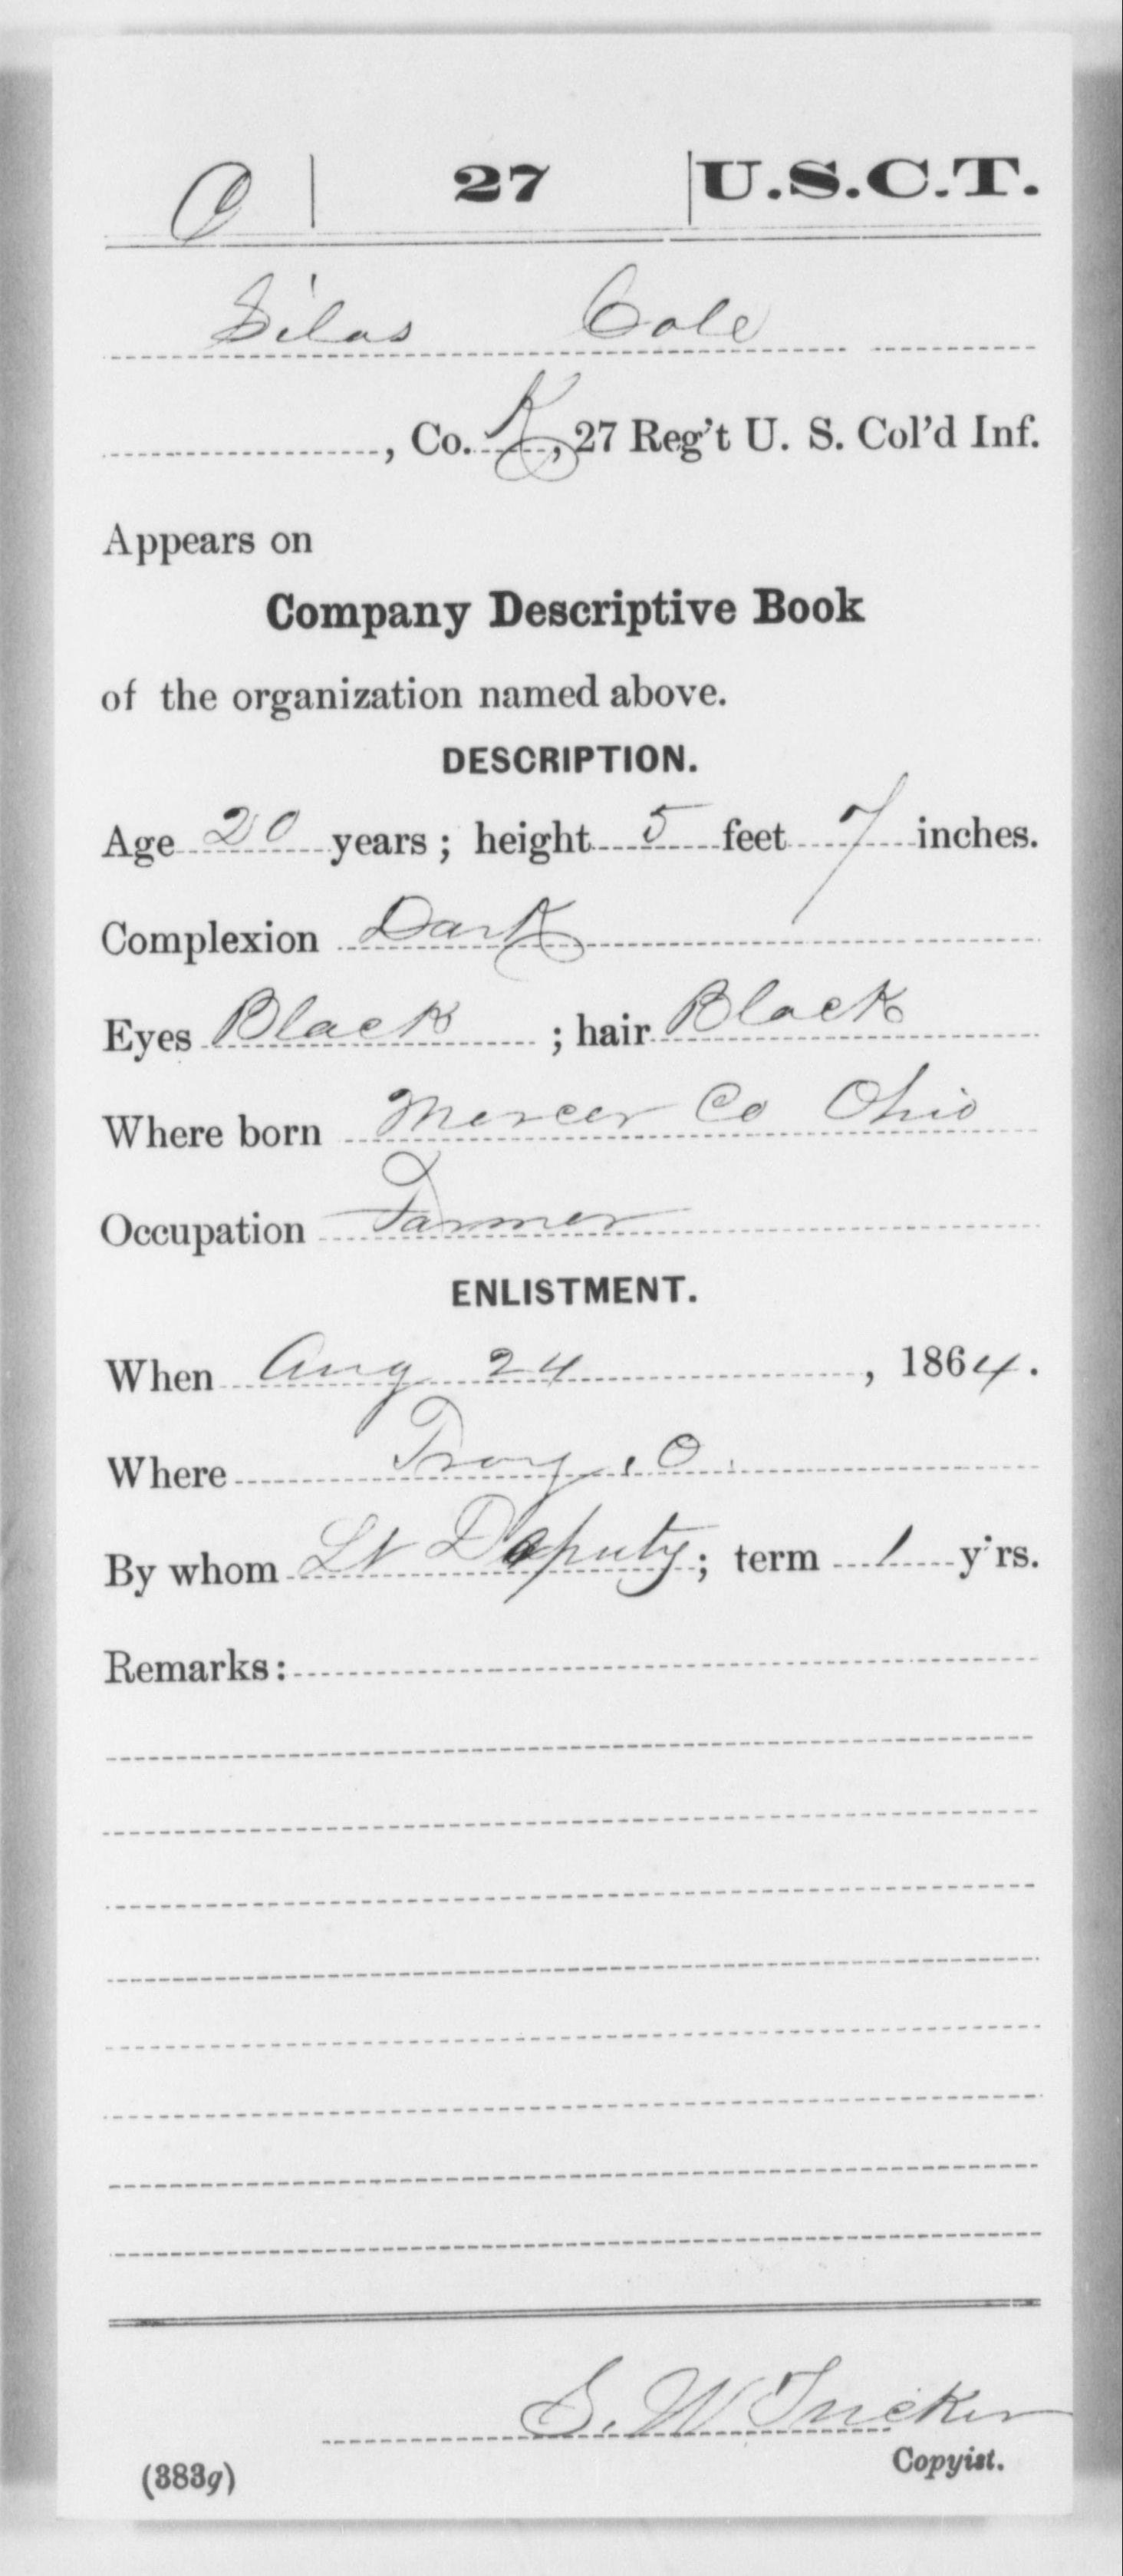 C | 27 | U.S.C.T.
Silas Cole
, Co. K, 27 Reg't U. S. Col'd Inf.
Appears on
Company Descriptive Book
of the organization named above.
DESCRIPTION.
Age 20 years; height 5 feet 7 inches.
Complexion Dark
Eyes Black; hair Black
Where born Mercer Co Ohio
Occupation Farmer
ENLISTMENT.
When Aug 24, 1864.
Where Troy, O.
By whom Lt Deputy; term 1 y'rs.
Remarks:
S. W. Tucker
Copyist.
(383g)